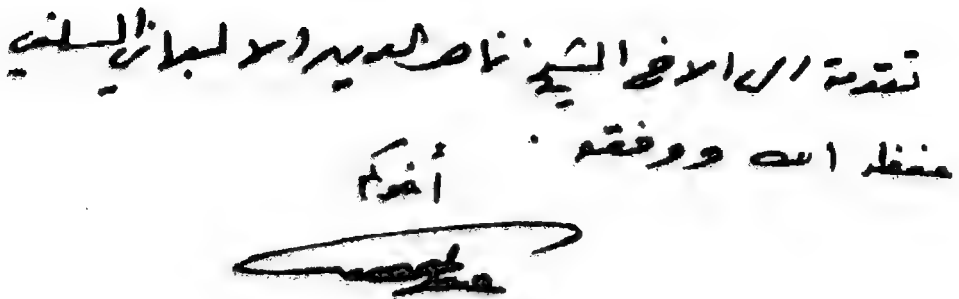 تقدمة الى الاخ الشيخ ناصر الدين الالباني السلفي
حفظه الله ووفقه .
أخوكم